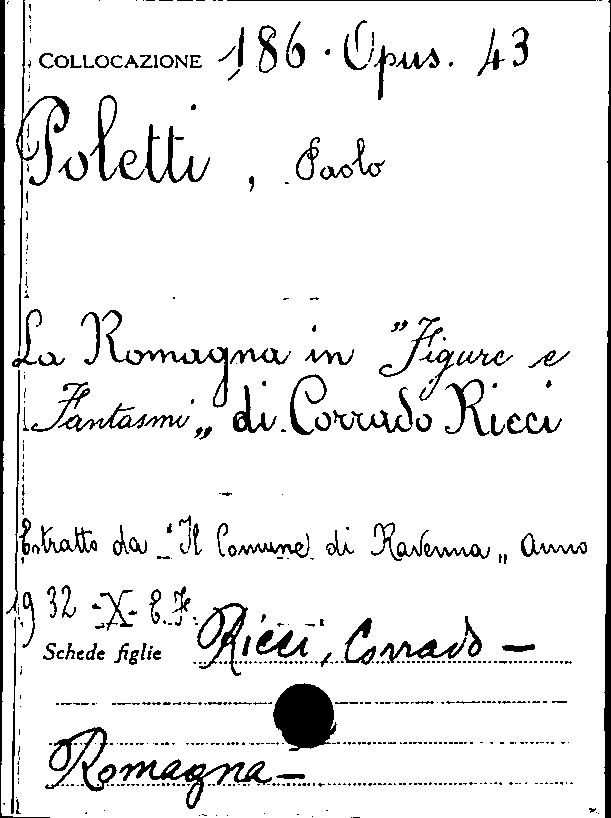 COLLOCAZIONE 186 · Opus. 43
Poletti, Paolo
La Romagna in "Figure e
Fantasmi„ di Corrado Ricci
Estratto da "Il Comune di Ravenna„ anno
1932 -X- E.F.
Schede figlie Ricci, Corrado —
Romagna —